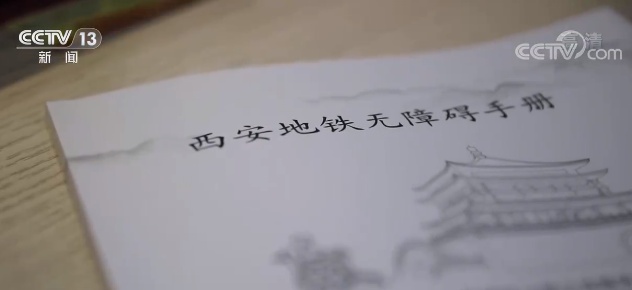 CCTV 13
新闻
高清
CCTV.com
西安地铁无障碍手册